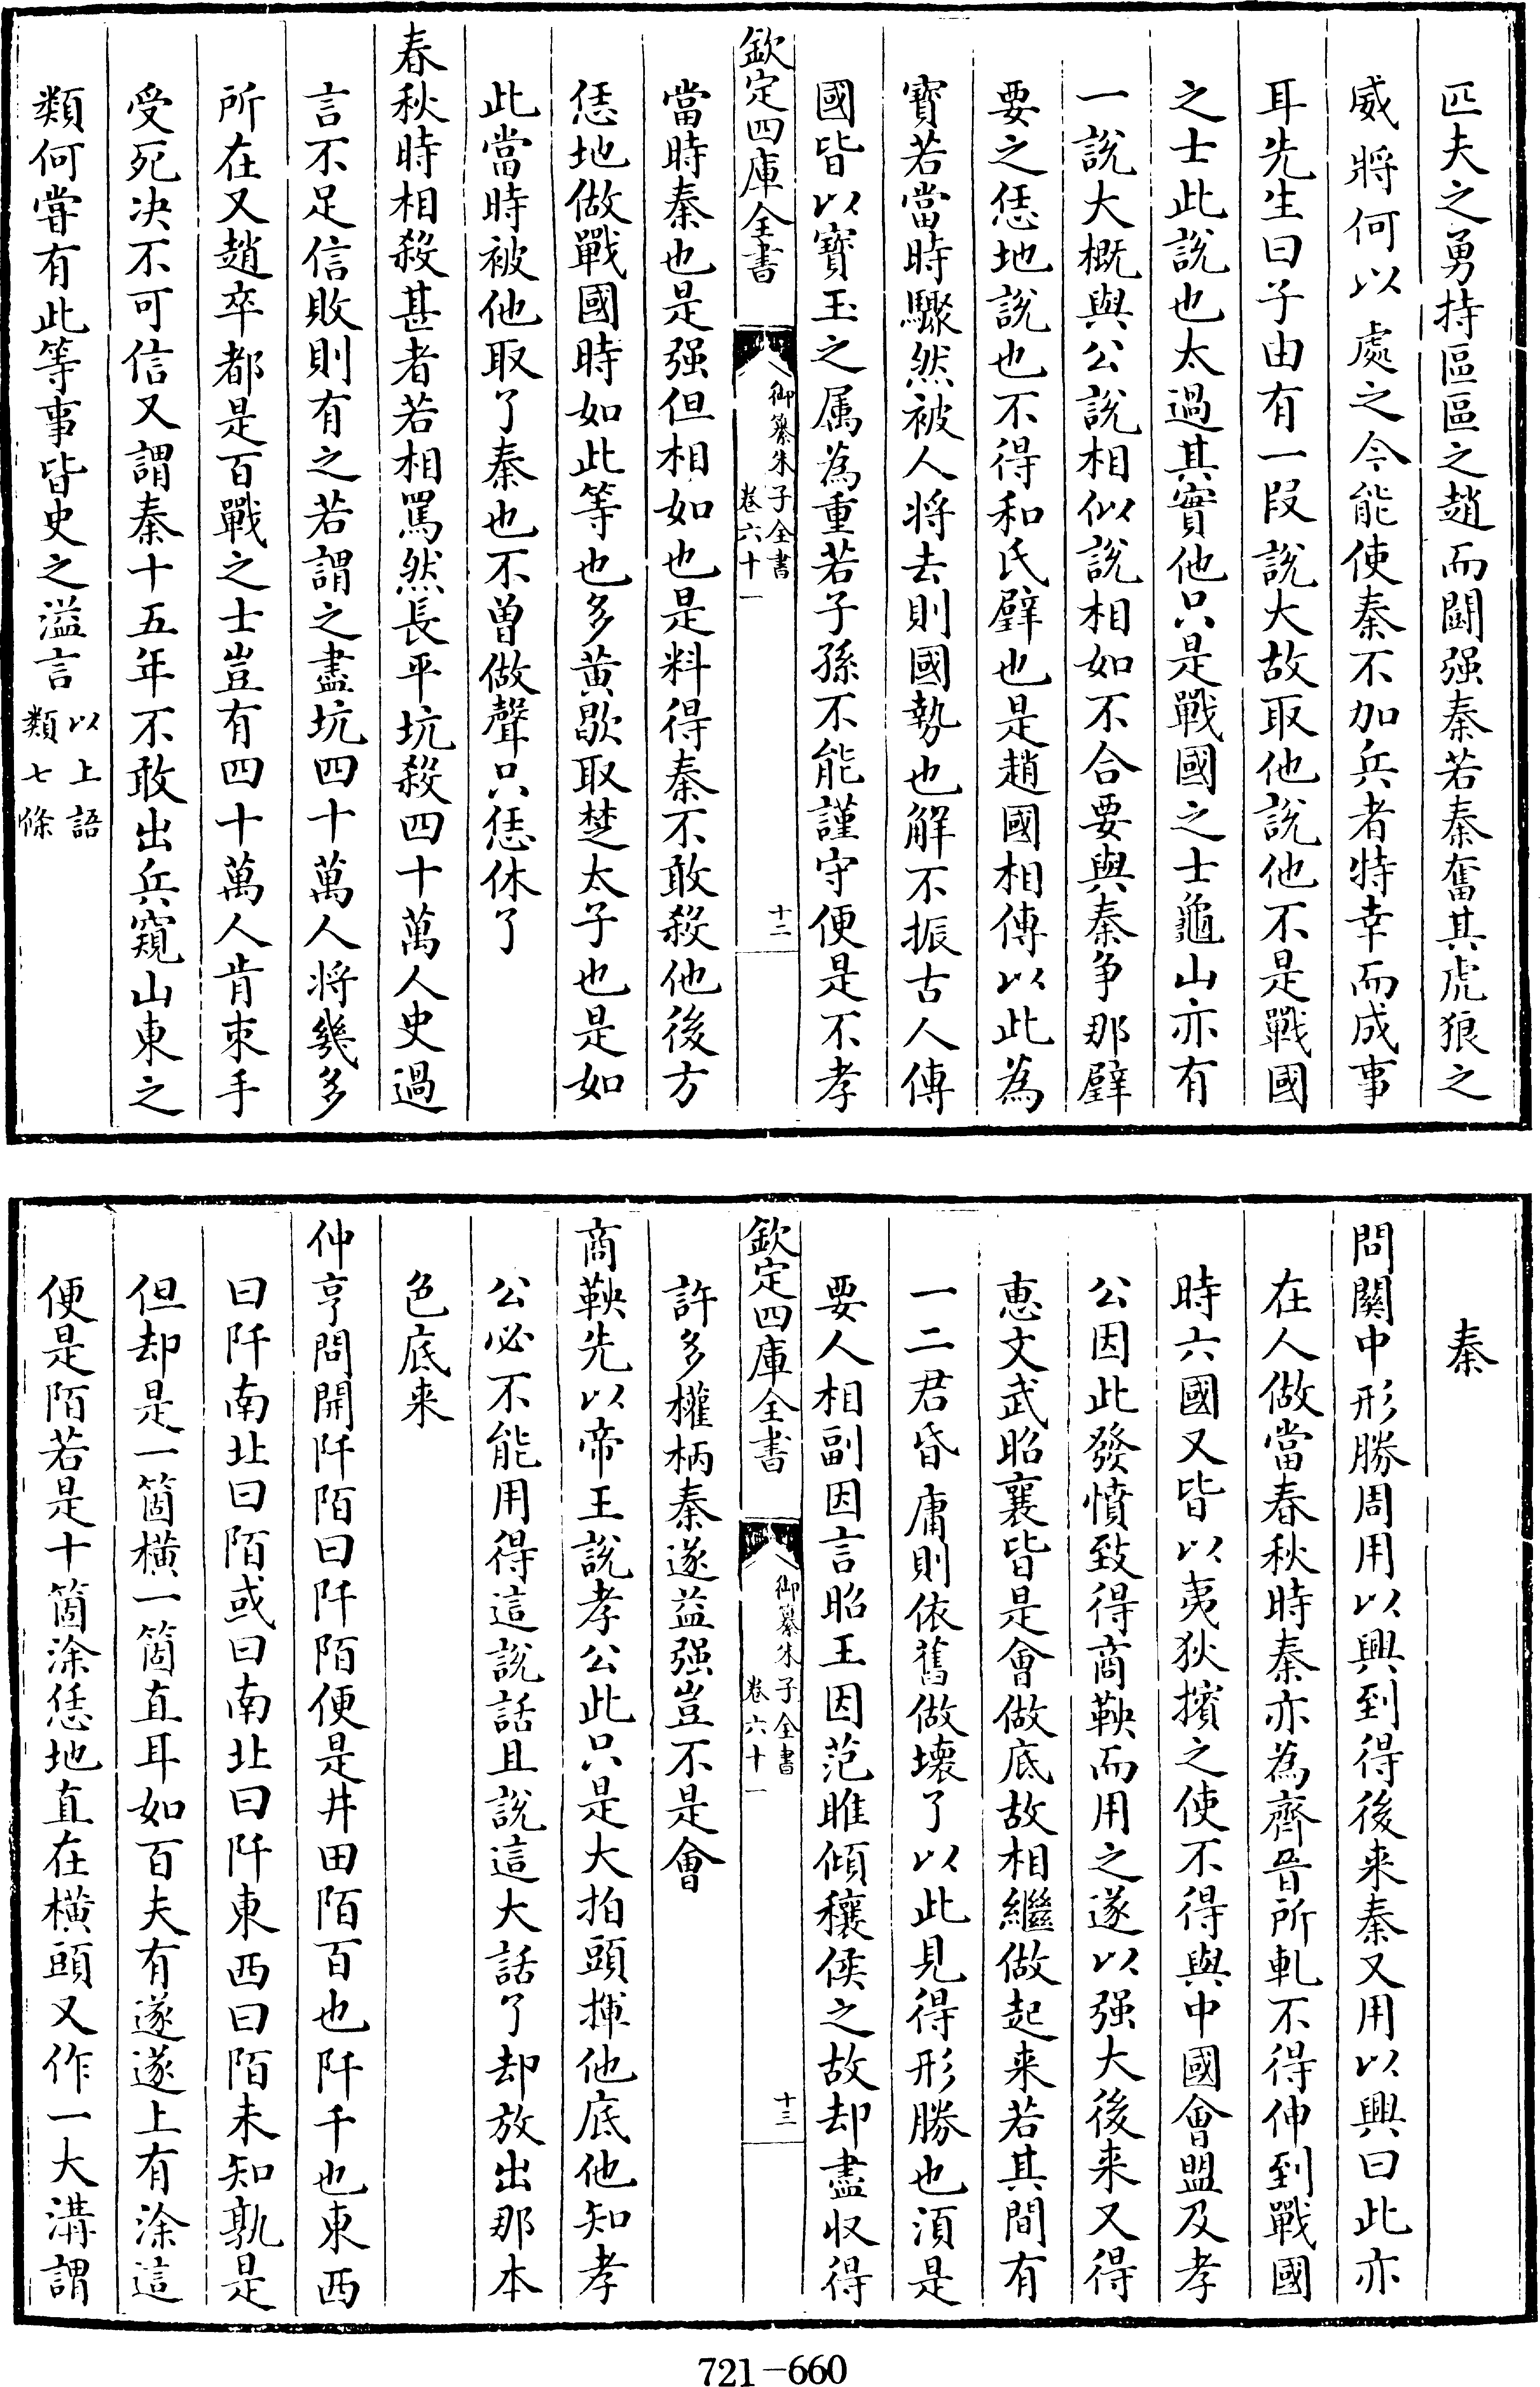 匹夫之勇持區區之趙而鬬强秦若秦奮其虎狼之
威將何以處之今能使秦不加兵者特幸而成事
耳先生曰子由有一段說大故取他說他不是戰國
之士此說也太過其實他只是戰國之士龜山亦有
一說大概與公說相似說相如不合要與秦爭那璧
要之恁地說也不得和氏璧也是趙國相傳以此為
寶若當時驟然被人將去則國勢也解不振古人傳
國皆以寶玉之属為重若子孫不能謹守便是不孝
欽定四庫全書
御纂朱子全書
卷六十一
十二
當時秦也是强但相如也是料得秦不敢殺他後方
恁地做戰國時如此等也多黄歇取楚太子也是如
此當時被他取了秦也不曾做聲只恁休了
春秋時相殺甚者若相罵然長平坑殺四十萬人史遷
言不足信敗則有之若謂之盡坑四十萬人將幾多
所在又趙卒都是百戰之士豈有四十萬人肯束手
受死决不可信又謂秦十五年不敢出兵窺山東之
類何嘗有此等事皆史之溢言
以上語
類七條
秦
問關中形勝周用以興到得後来秦又用以興曰此亦
在人做當春秋時秦亦為齊晉所軋不得伸到戰國
時六國又皆以夷狄擯之使不得與中國會盟及孝
公因此發憤致得商鞅而用之遂以强大後来又得
惠文武昭襄皆是會做底故相繼做起来若其間有
一二君昏庸則依舊做壊了以此見得形勝也湏是
要人相副因言昭王因范睢傾穰侯之故却盡収得
欽定四庫全書
御纂朱子全書
卷六十一
十三
許多權柄秦遂益强豈不是會
商鞅先以帝王說孝公此只是大拍頭揮他底他知孝
公必不能用得這說話且說這大話了却放出那本
色底来
仲亨問開阡陌曰阡陌便是井田陌百也阡千也東西
曰阡南北曰陌或曰南北曰阡東西曰陌未知孰是
但却是一箇橫一箇直耳如百夫有遂遂上有涂這
便是陌若是十箇涂恁地直在橫頭又作一大溝謂
721-660